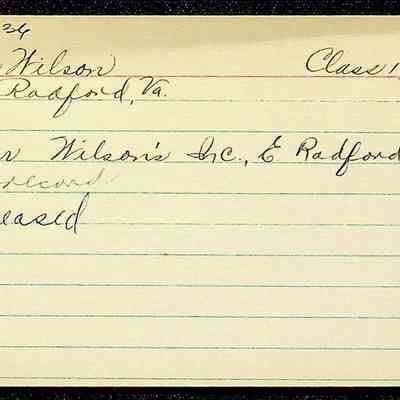 34
Wilson Class 1
Radford, Va.
Wilson's Inc., E Radford
record
eased